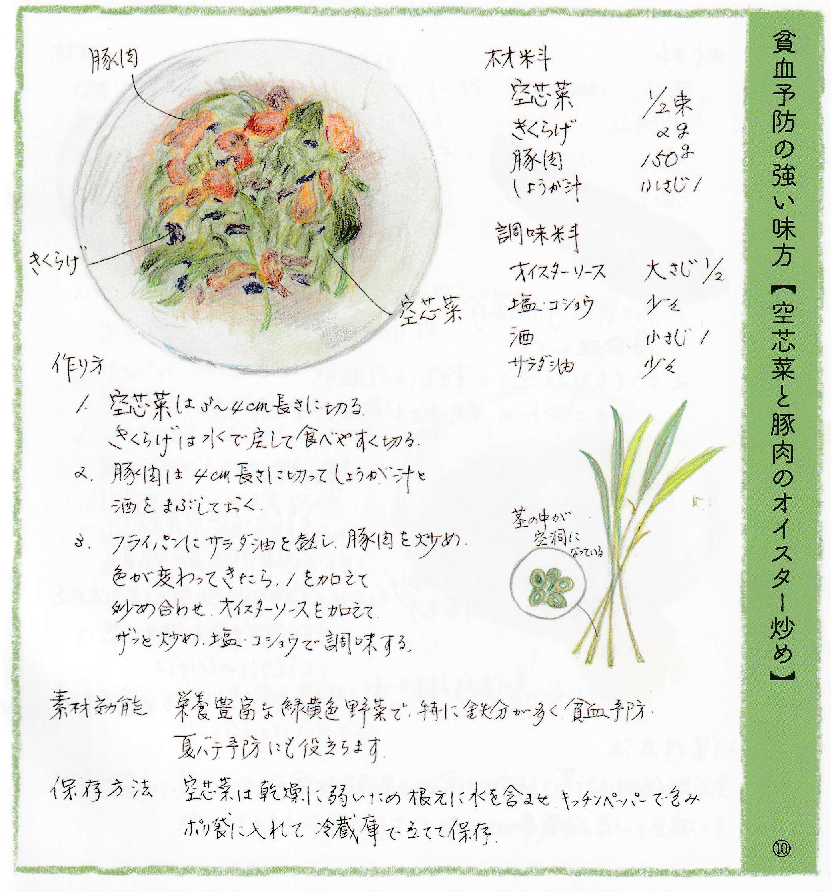 貧血予防の強い味方【空芯菜と豚肉のオイスター炒め】
⑩
豚肉
きくらげ
空芯菜
材料
空芯菜 1/2束
きくらげ 2g
豚肉 150g
しょうが汁 小さじ1
調味料
オイスターソース 大さじ1/2
塩・コショウ 少々
酒 小さじ1
サラダ油 少々
作り方
1. 空芯菜は3〜4cm長さに切る.
きくらげは水で戻して食べやすく切る.
2. 豚肉は4cm長さに切ってしょうが汁と
酒をまぶしておく.
3. フライパンにサラダ油を熱し、豚肉を炒め.
色が変わってきたら、1を加えて
炒め合わせ、オイスターソースを加えて
ザッと炒め、塩・コショウで調味する.
茎の中が
空洞に
なっている
素材効能 栄養豊富な緑黄色野菜で、特に鉄分が多く貧血予防.
夏バテ予防にも役立ちます.
保存方法 空芯菜は乾燥に弱いため根元に水を含ませ、キッチンペーパーで包み
ポリ袋に入れて冷蔵庫で立てて保存.